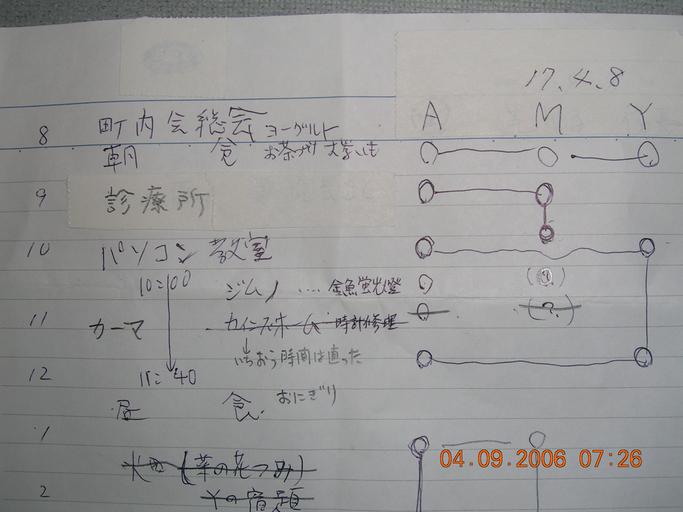 17.4.8
A M Y
8 町内会総会 ヨーグルト
朝 食 お茶づけ 大学いも
9 診療所
10 パソコン教室
10:00 ジムノ .... 金魚蛍光燈 (?)
11 カーマ カインズホーム 時計修理 (?)
いちおう時間は直った
12 11:40
昼 食 おにぎり
1
(菜の花つみ)
2 Yの宿題
04.09.2006 07:26